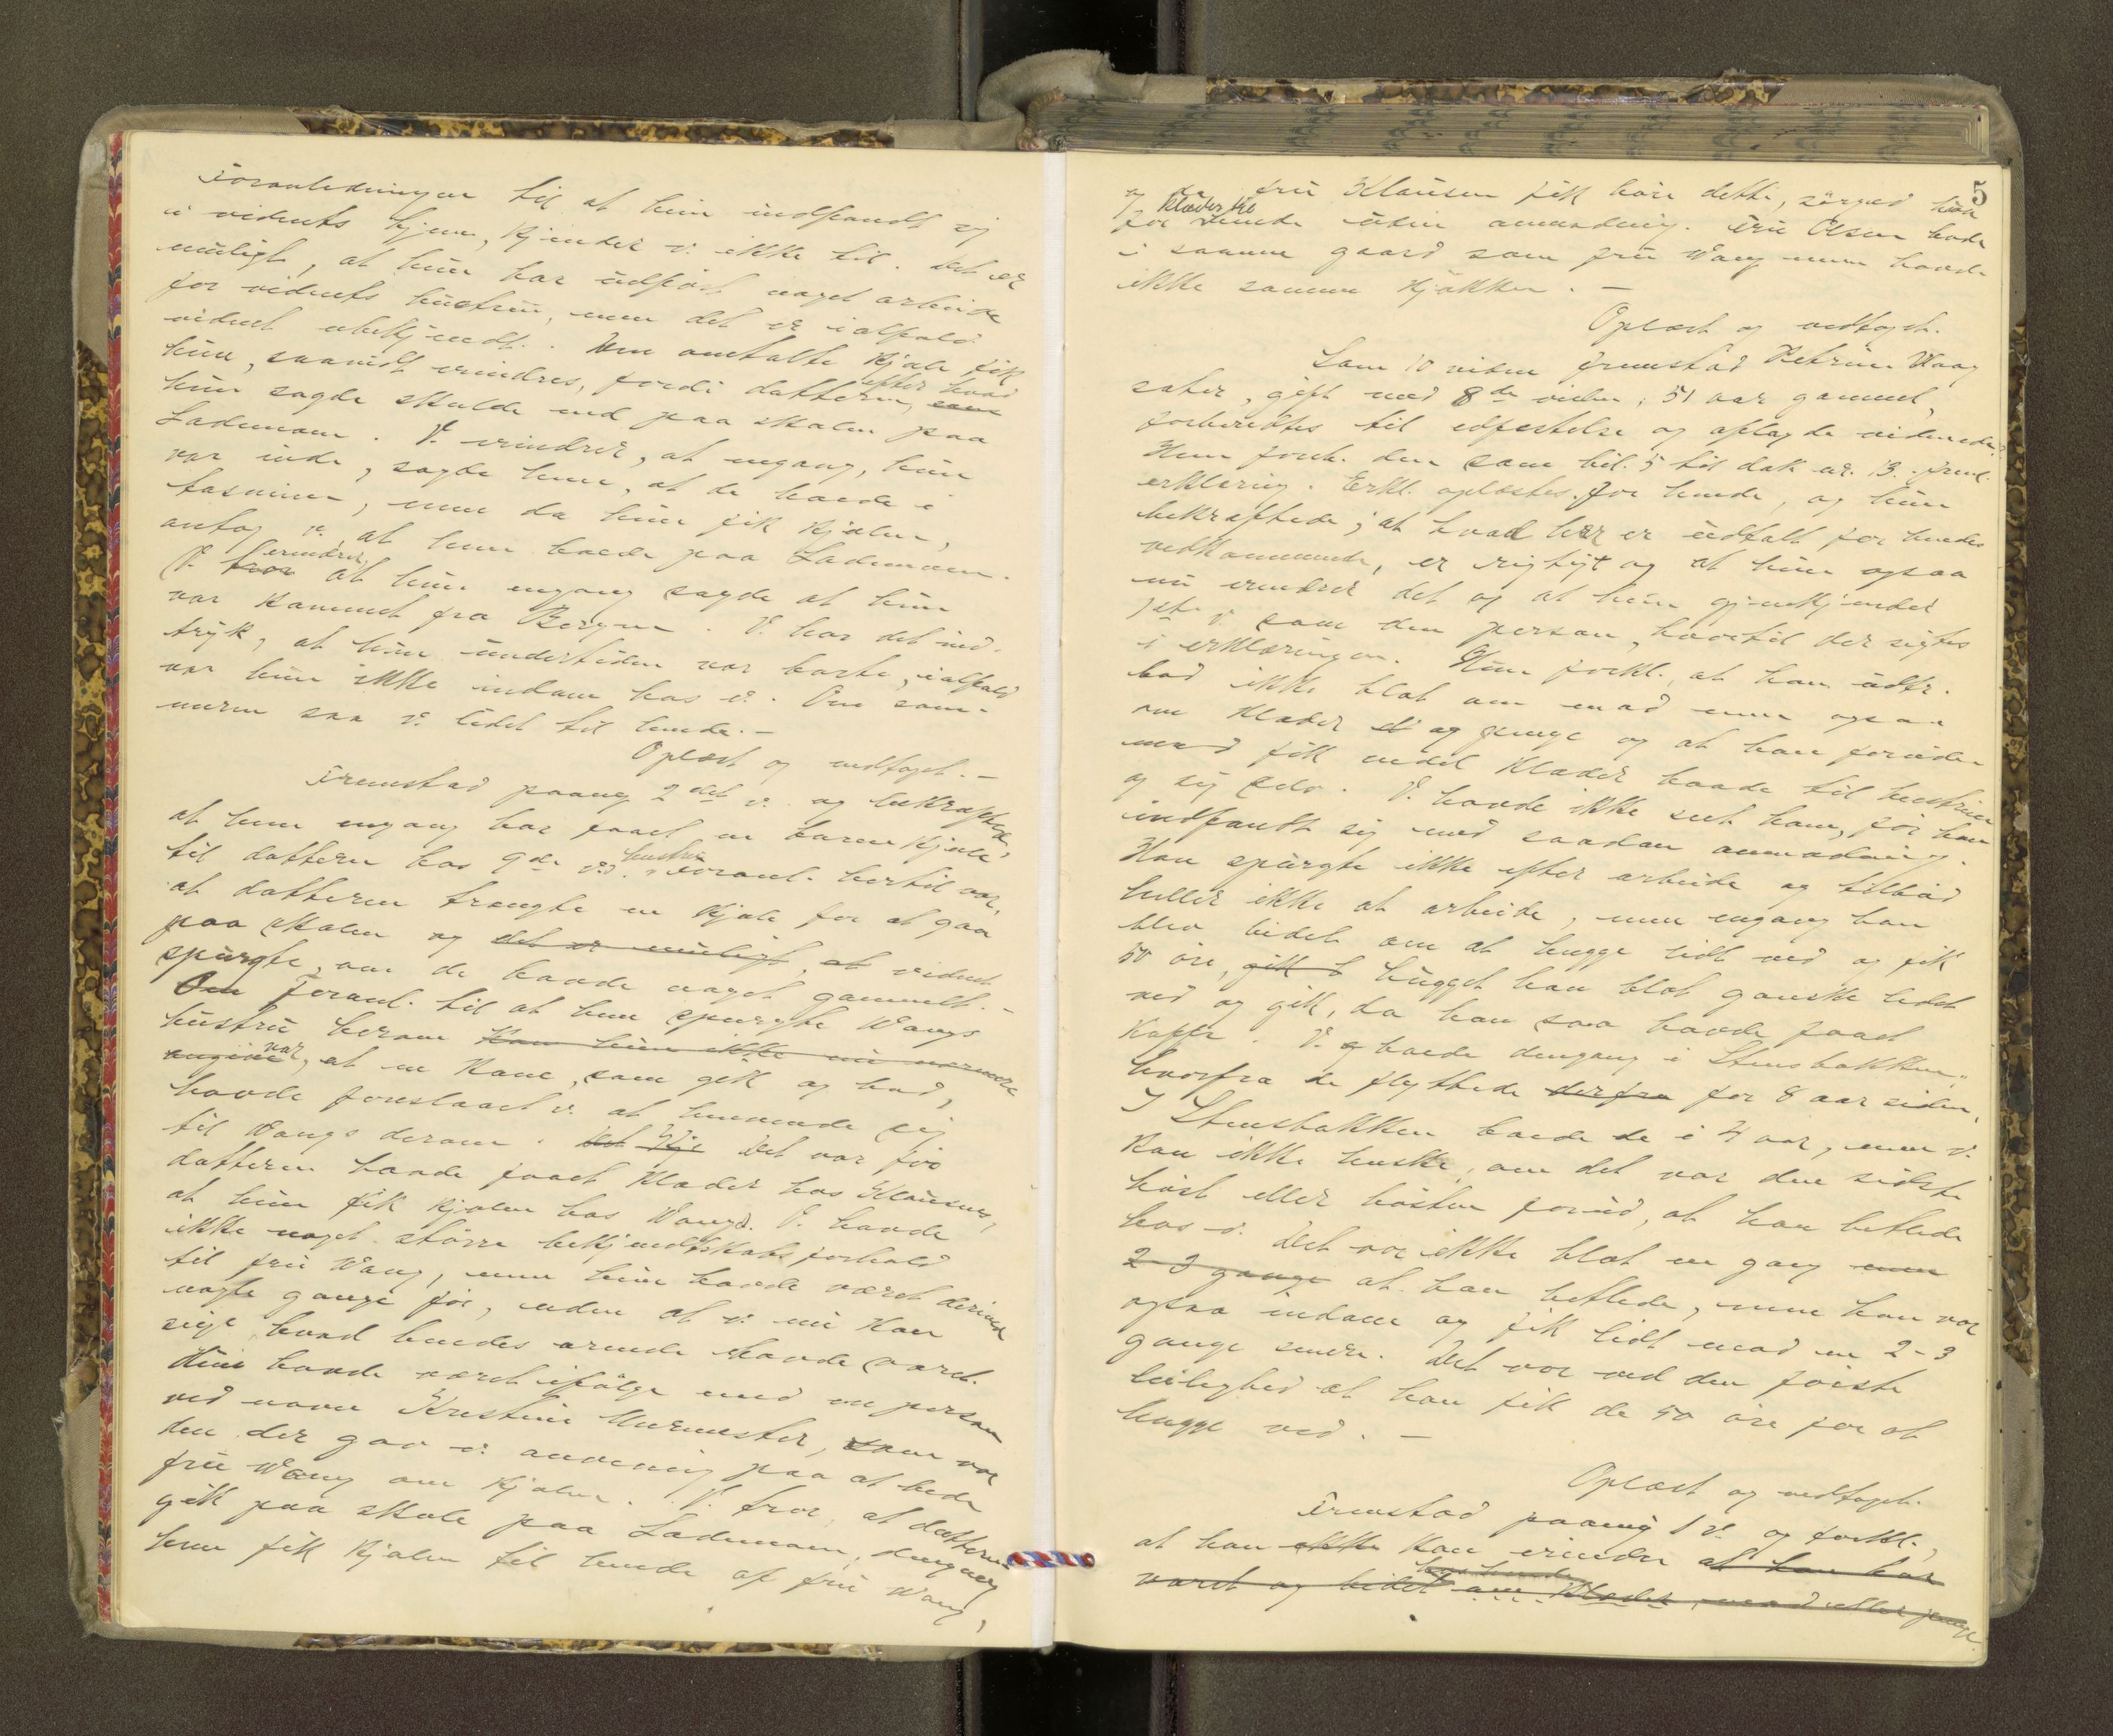 Foranledningen til at hun indfandt sig
i vidnets hjem, kjender v. ikke til. Det er
muligt, at hun har udført noget arbeide
for vidnets hustru, men det er ialfald
vidnet ubekjendt. Den omtalte kjole fik
hun, saavidt erindres, fordi datteren, som efter hvad
hun sagde skulde ind paa skolen paa
Lademoen. V. erindrer, at engang, hun
var inde, sagde hun, at de boede i
, men da hun fik kjolen,
antog v. at hun boede paa Lademoen.
V. tror erindrer, at hun engang sagde at hun
var kommet fra Bergen. V. har det ind-
tryk, at hun undertiden var borte, ialfald
var hun ikke indom hos v. Om som-
meren saa v. lidet til hende. –
Oplæst og vedtaget. –
Fremstod paany 2det v. og bekræftede,
at hun engang har faaet en barnekjole
til datteren hos 9de vid. hustru. Foranl. hertil var,
at datteren trængte en kjole for at gaa
paa skolen og det er muligt, at vidnet
spurgte, om de havde noget gammelt. –
Om Foranl. til at hun spurgte Wangs
hustru herom kan hun ikke nu nærmere
angive var, at en kone, som gik og bad,
havde foreslaaet v. at henvende sig
til Wangs derom. Det var før
datteren havde faaet klæder hos Klausens,
at hun fik kjolen hos Wangs. V. havde
ikke noget større bekjendtskabsforhold
til fru Wang, men hun havde været derinde
nogle gange før, uden at v. nu kan
sige, hvad hendes ærende havde været.
Hun havde været ifølge med en person
ved navn Kristine Murmester, som var
den der gav v. anvisning paa at bede
fru Wang om kjolen. V. tror, at datteren
gik paa skole paa Lademoen, dengang
hun fik kjolen til hende af fru Wang,
5
og da fru Klausen fik høre dette, sørged hun
for klæder til hende uden anmodning. Fru Olsen bode
i samme gaard som fru Wang men havde
ikke samme kjøkken. –
Oplæst og vedtaget.
Som 10 vidne fremstod Petrine Waag
sæter, gift med 8de vidne, 51 aar gammel,
forberedtes til edfæstelse og aflagde vidneed.
Hun forek. den som bil. 5 til dok nr. 13. freml.
erklæring. Erkl. oplæstes for hende, og hun
bekræftede, at hvad her er udtalt for hendes
vedkommende, er rigtigt og at hun ogsaa
nu erindrer det og at hun gjenkjender
1ste v. som den person, hvortil der sigtes
i erklæringen. Hun forkl., at han udtr.
bad ikke blot om mad men ogsaa
om klæder og penge og at han foruden
mad fik endel klæder baade til hustruen
og sig selv. V. havde ikke seet ham, før han
indfandt sig med saadan anmodning.
Han spurgte ikke efter arbeide og tilbød
heller ikke at arbeide, men engang han
blev bedet om at hugge lidt ved og fik
50 øre, gik h hugget han blot ganske lidet
ved og gik, da han saa havde faaet
kaffe. V. boede dengang i Stensbakken,
hvorfra de flyttede derfra for 8 aar siden.
I Stensbakken boede de i 4 aar, men v.
kan ikke huske, om det var den sidste
høst eller høsten forud, at han betlede
hos v. Det var ikke blot en gang men
2-3 gange at han betlede, men han var
ogsaa indom og fik lidt mad en 2-3
gange senere. Det var ved den første
leilighed at han fik de 50 øre for at
hugge ved. –
Oplæst og vedtaget.
Fremstod paany 1 v. og forkl.,
at han ikke kan erindre at han har
været hos hende og bedet om klæder, mad eller penge.